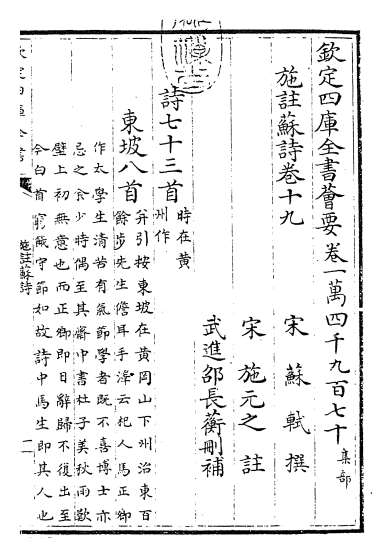 欽定四庫全書薈要卷一萬四千九百七十 集部
施註蘇詩卷十九
宋 蘇軾 撰
宋 施元之 註
武進邵長蘅刪補
詩七十三首 時在黃
州作
東坡八首
并引按東坡在黃岡山下州治東百
餘步先生儋耳手澤云杞人馬正卿
作太學生清苦有氣節學者既不喜博士亦
忌之余少時偶至其齋中書杜子美秋雨歎
壁上初無意也而正卿即日辭歸不復出至
今白首窮餓守節如故詩中馬生即其人也
欽定四庫全書
施註蘇詩
一